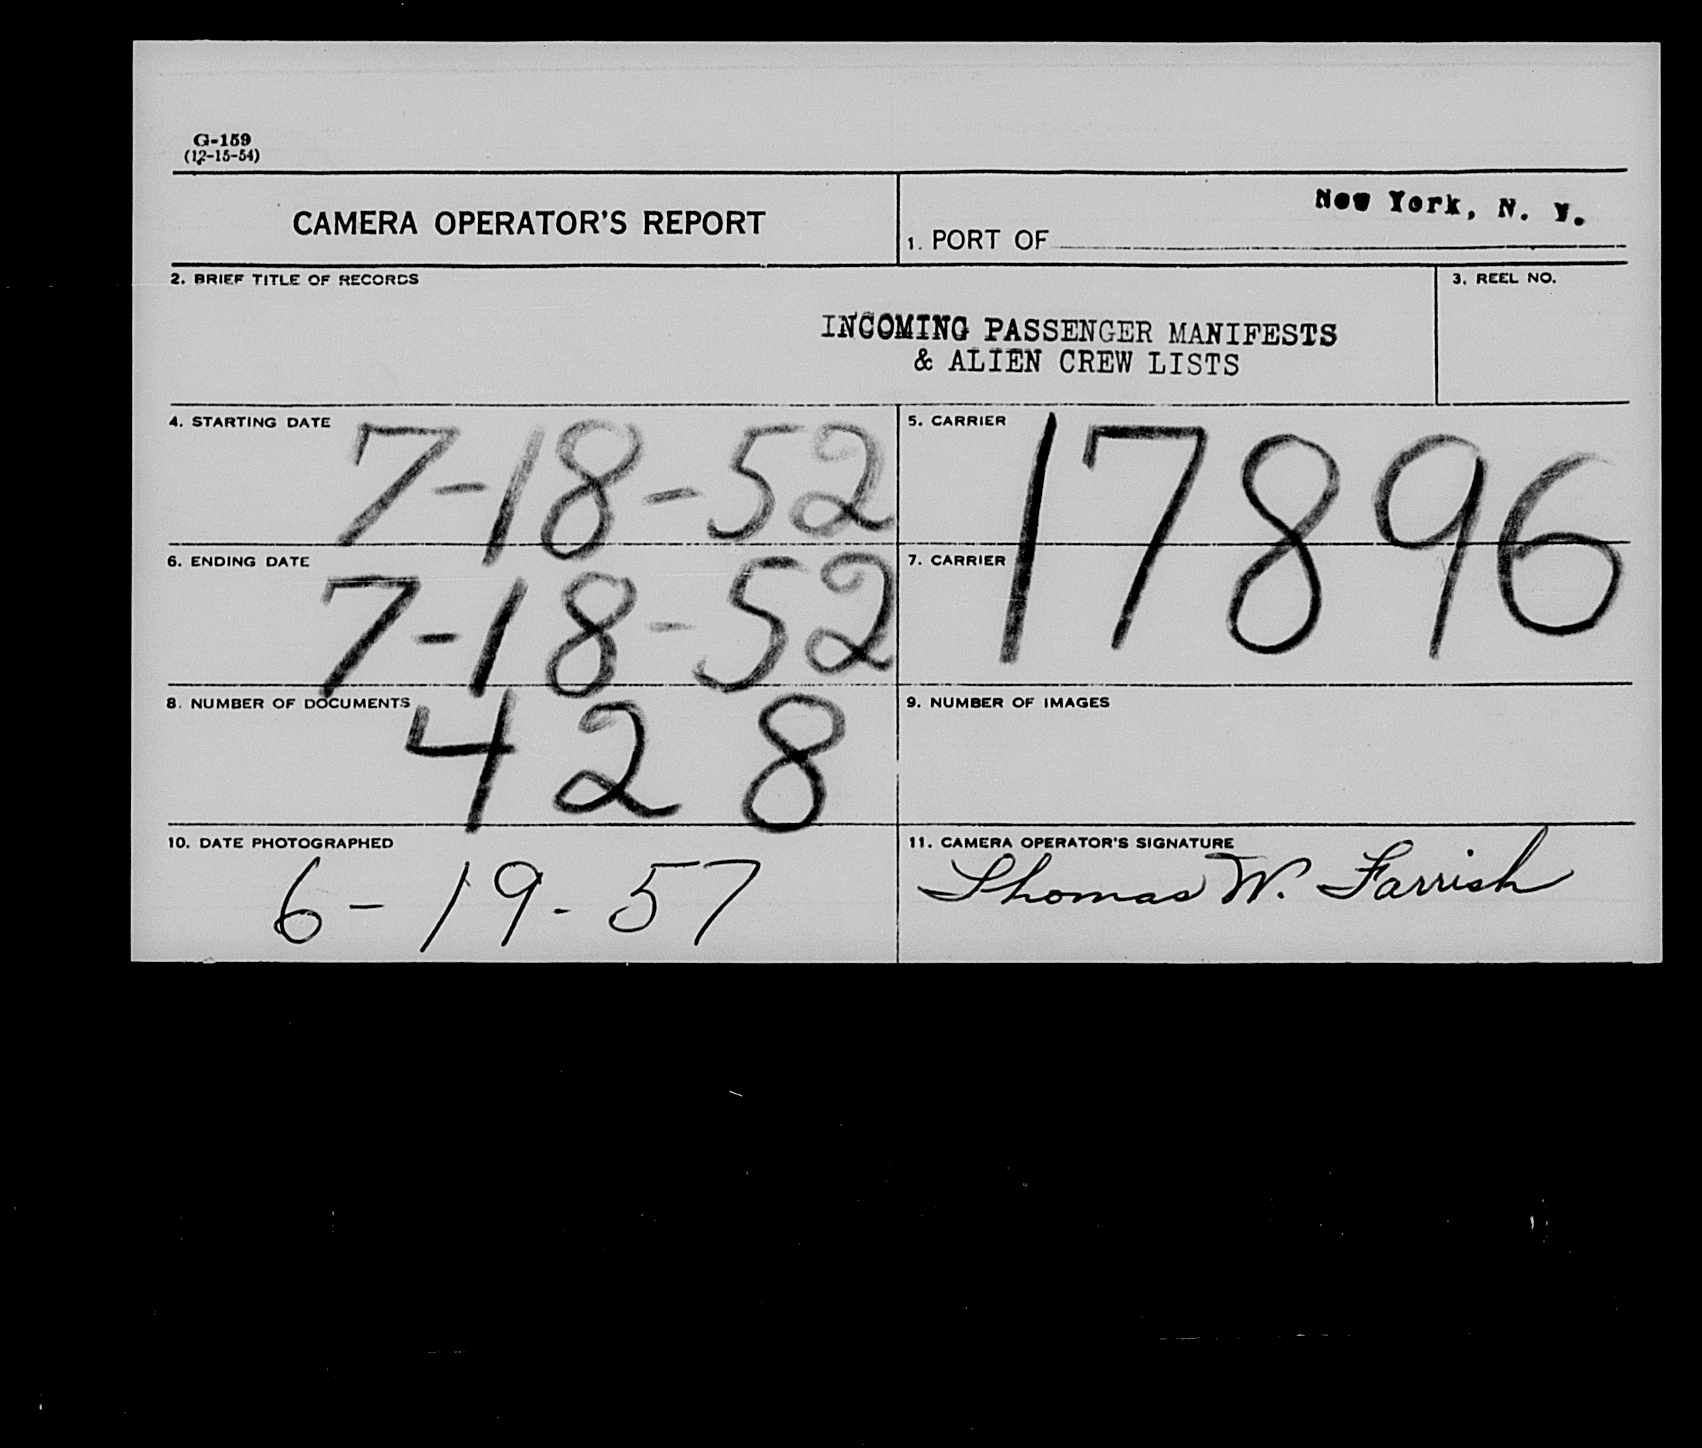 G-159
(12-15-54)
CAMERA OPERATOR'S REPORT
1. PORT OF New York, N. Y.
2. BRIEF TITLE OF RECORDS
3. REEL NO.
INCOMING PASSENGER MANIFESTS
& ALIEN CREW LISTS
4. STARTING DATE 7-18-52
5. CARRIER 17896
6. ENDING DATE 7-18-52
7. CARRIER
8. NUMBER OF DOCUMENTS 428
9. NUMBER OF IMAGES
10. DATE PHOTOGRAPHED
6-19-57
11. CAMERA OPERATOR'S SIGNATURE
Thomas W. Farrish